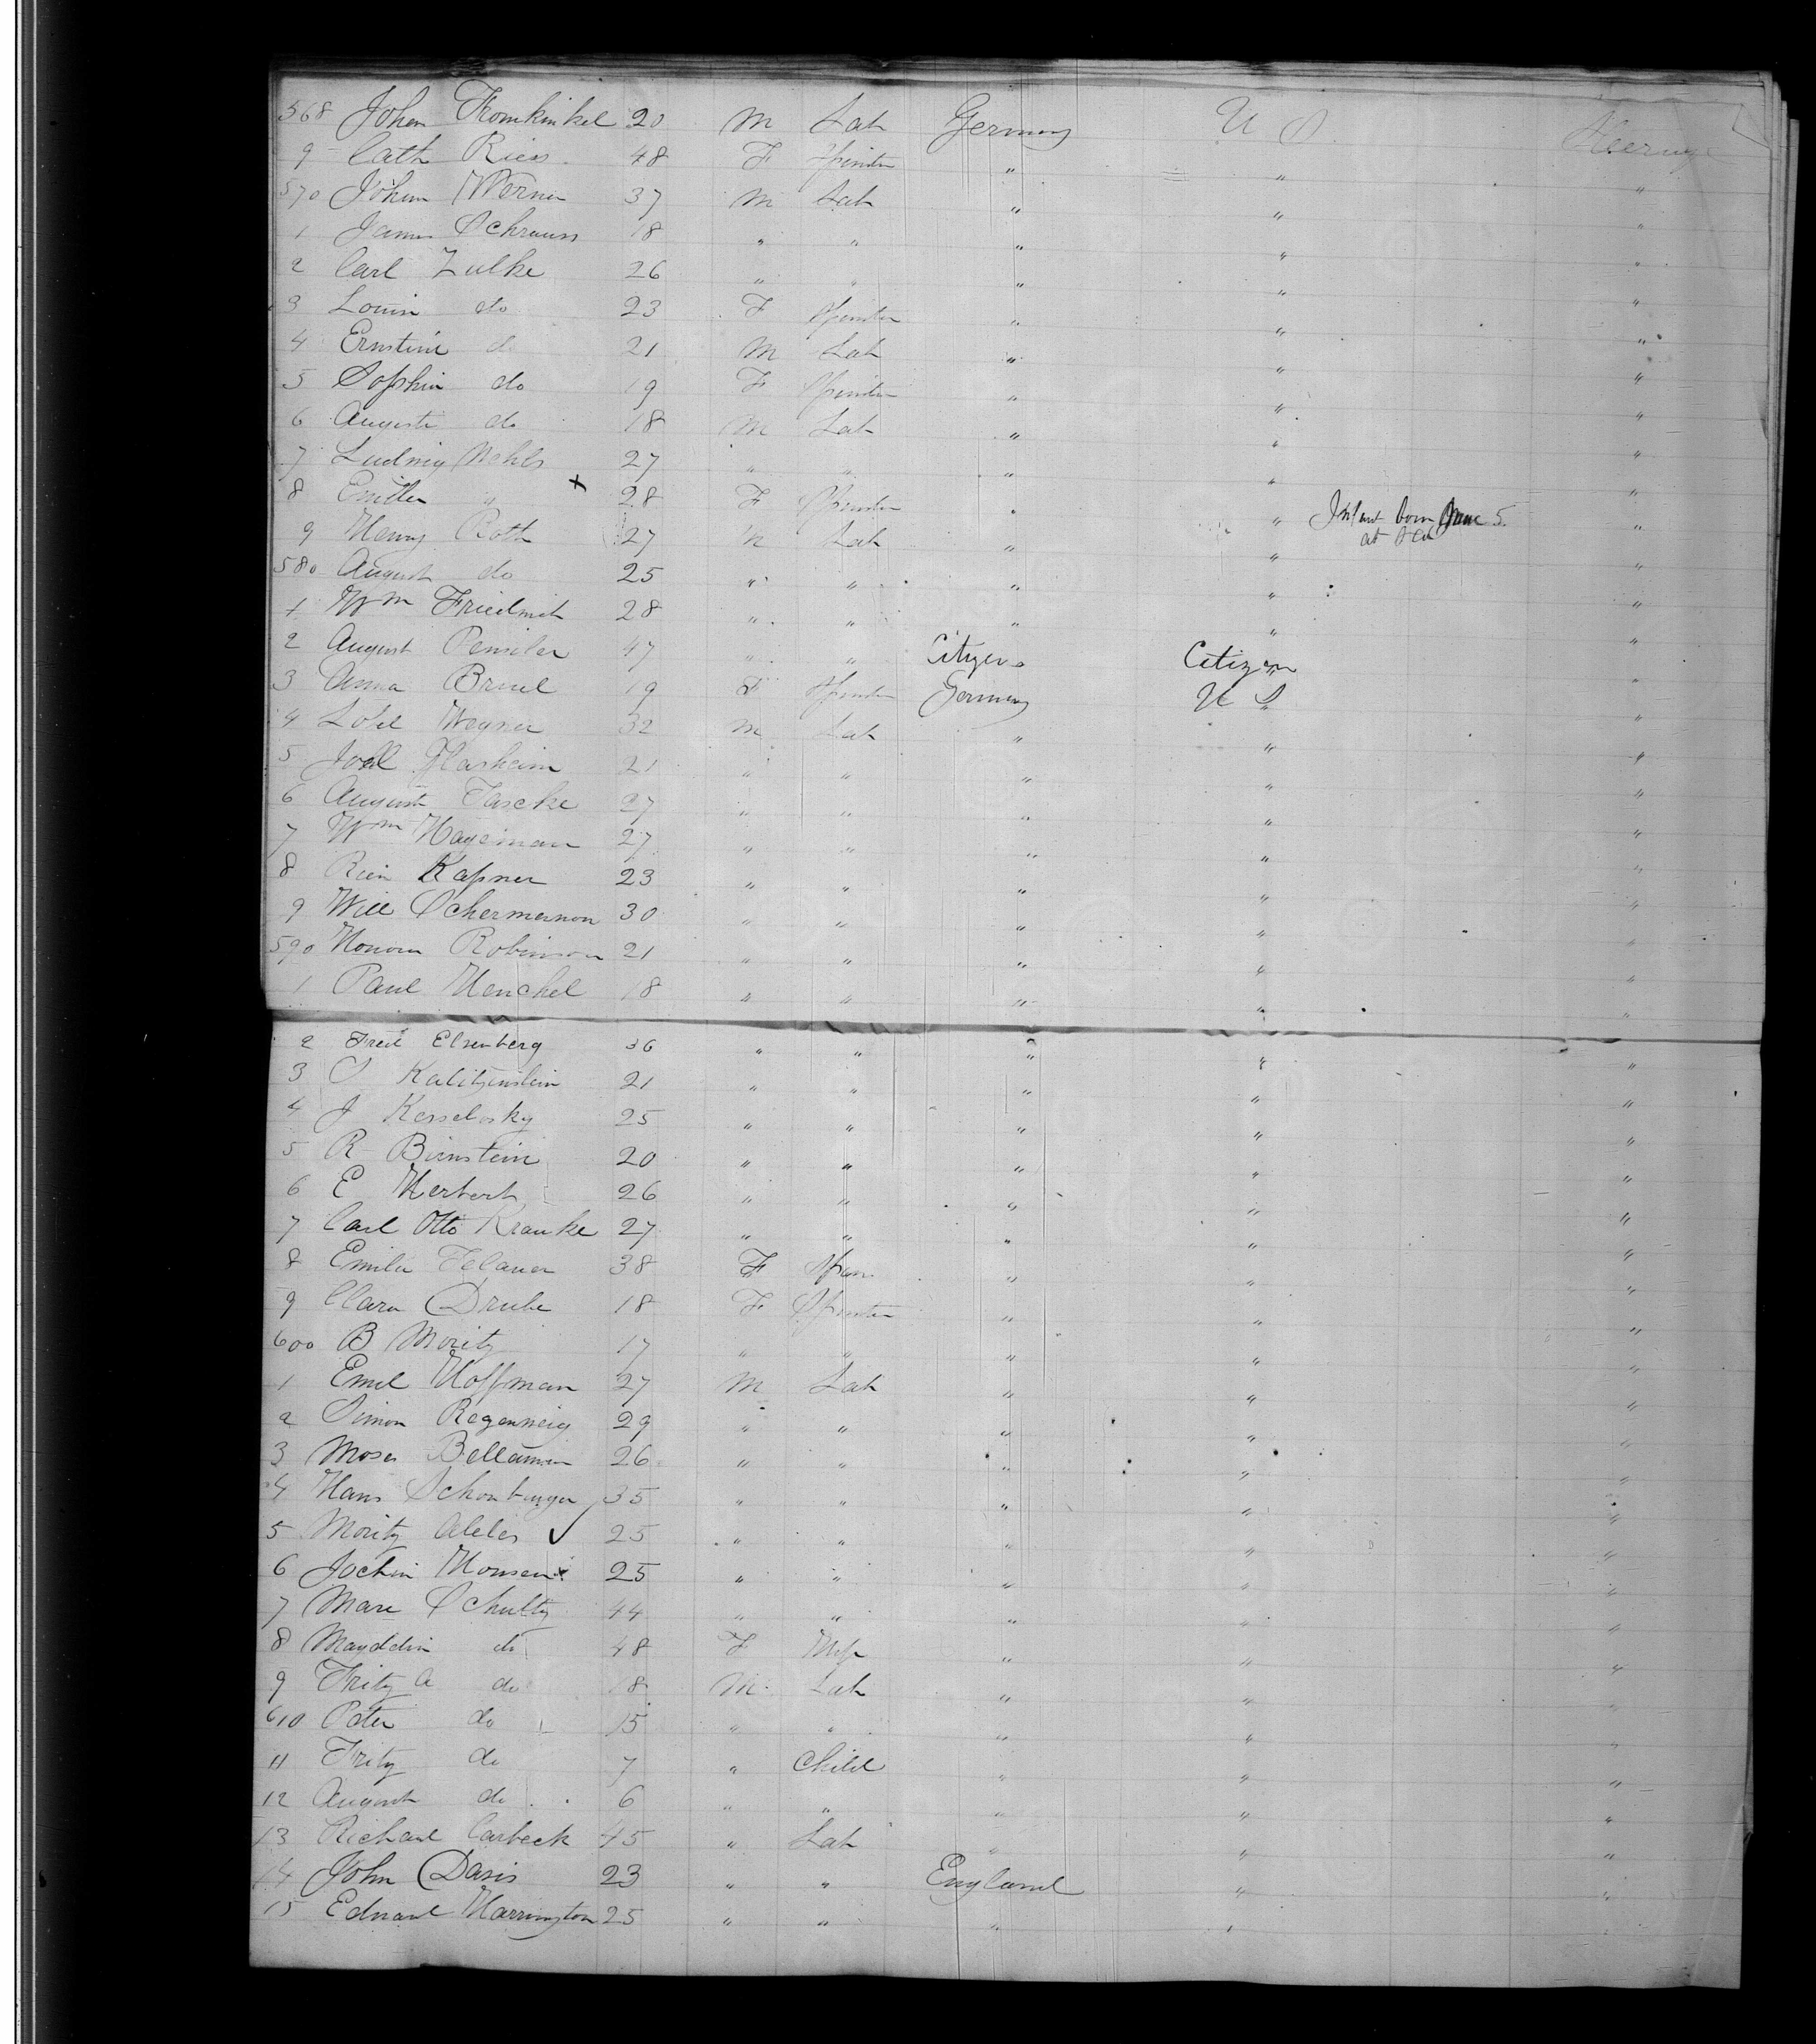 568 Johan Fromkinkel 20 M Lab Germany U S Steerage
9 Cath Riess 48 F Spinster " " "
570 Johan Werner 37 M Lab " " "
1 James Schrauss 18 " " " " "
2 Carl Zulke 26 " " " " "
3 Louis do 23 F Spinster " " "
4 Ernstine do 21 M Lab " " "
5 Sophia do 19 F Spinster " " "
6 Auguste do 18 M Lab " " "
7 Ludwig Nehls 27 " " " " "
8 Emilie " x 28 F Spinster " " Infant born June 5 "
at Sea
9 Henry Roth 27 M Lab " " "
580 August do 25 " " " " "
1 Wm Friedrich 28 " " " " "
2 August 47 " " Citizen Citizen "
3 Anna Bruel 19 F Spinster Germany U S "
4 Wegner 32 M Lab " " "
5 Joel Flasheim 21 " " " " "
6 August Taseke 27 " " " " "
7 Wm Hageman 27 " " " " "
8 Kapner 23 " " " " "
9 Will Schermernon 30 " " " " "
590 Honora Robinson 21 " " " " "
1 Paul Henchel 18 " " " " "
2 Fred Elsenberg 36 " " " " "
3 S Kalitzenstein 21 " " " " "
4 J Kesselosky 25 " " " " "
5 R Birnstein 20 " " " " "
6 E Herbert 26 " " " " "
7 Carl Otto Kranke 27 " " " " "
8 Emilie 38 F Spin " " "
9 Clara Drube 18 F Spinster " " "
600 B Moritz 17 " " " " "
1 Emil Hoffman 27 M Lab " " "
2 Simon Regenweig 29 " " " " "
3 Moses Bellamin 26 " " " " "
4 Hans Schonberger 35 " " " " "
5 Moritz Abeles ✓ 25 " " " " "
6 Jochin Monsen 25 " " " " "
7 Marx Schultz 44 " " " " "
8 Magdelin do 48 F Wife " " "
9 Fritz A do 18 M Lab " " "
610 Peter do 15 " " " " "
11 Fritz do 7 " Child " " "
12 August do 6 " " " " "
13 Richard Carbeck 45 " Lab " " "
14 John Davis 23 " " England " "
15 Edward Harrington 25 " " " "